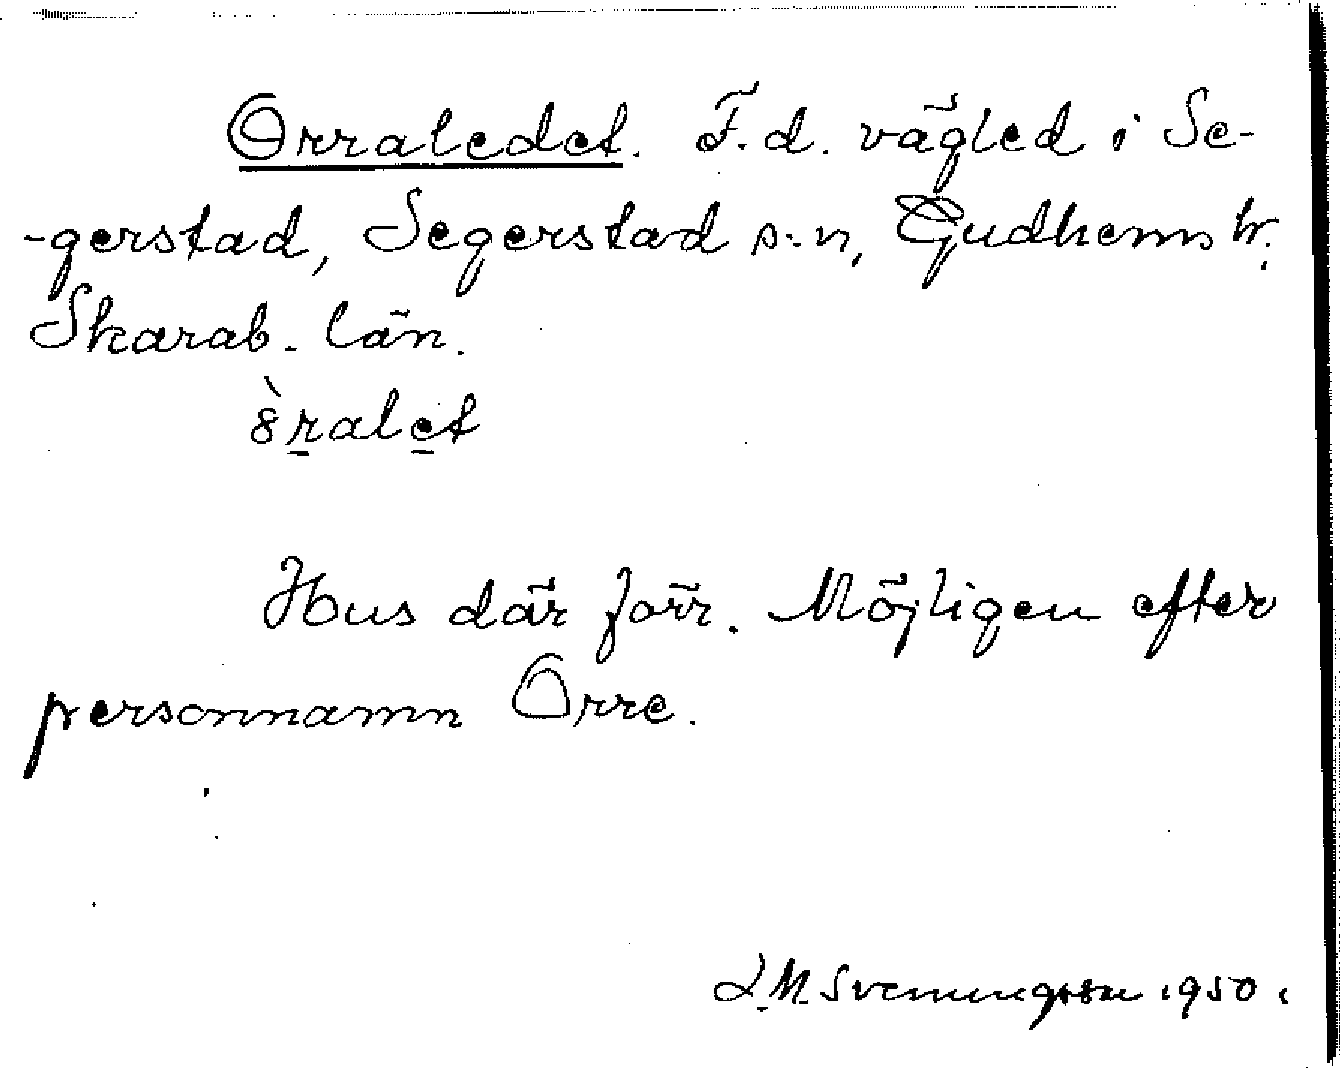 Orraledet. F.d. vägled i Se-
-gerstad, Segerstad s:n, Gudhems hr.
Skarab. län.
Hus där förr. Möjligen efter
personnamn Orre.
L.M. Svenungsson 1950.